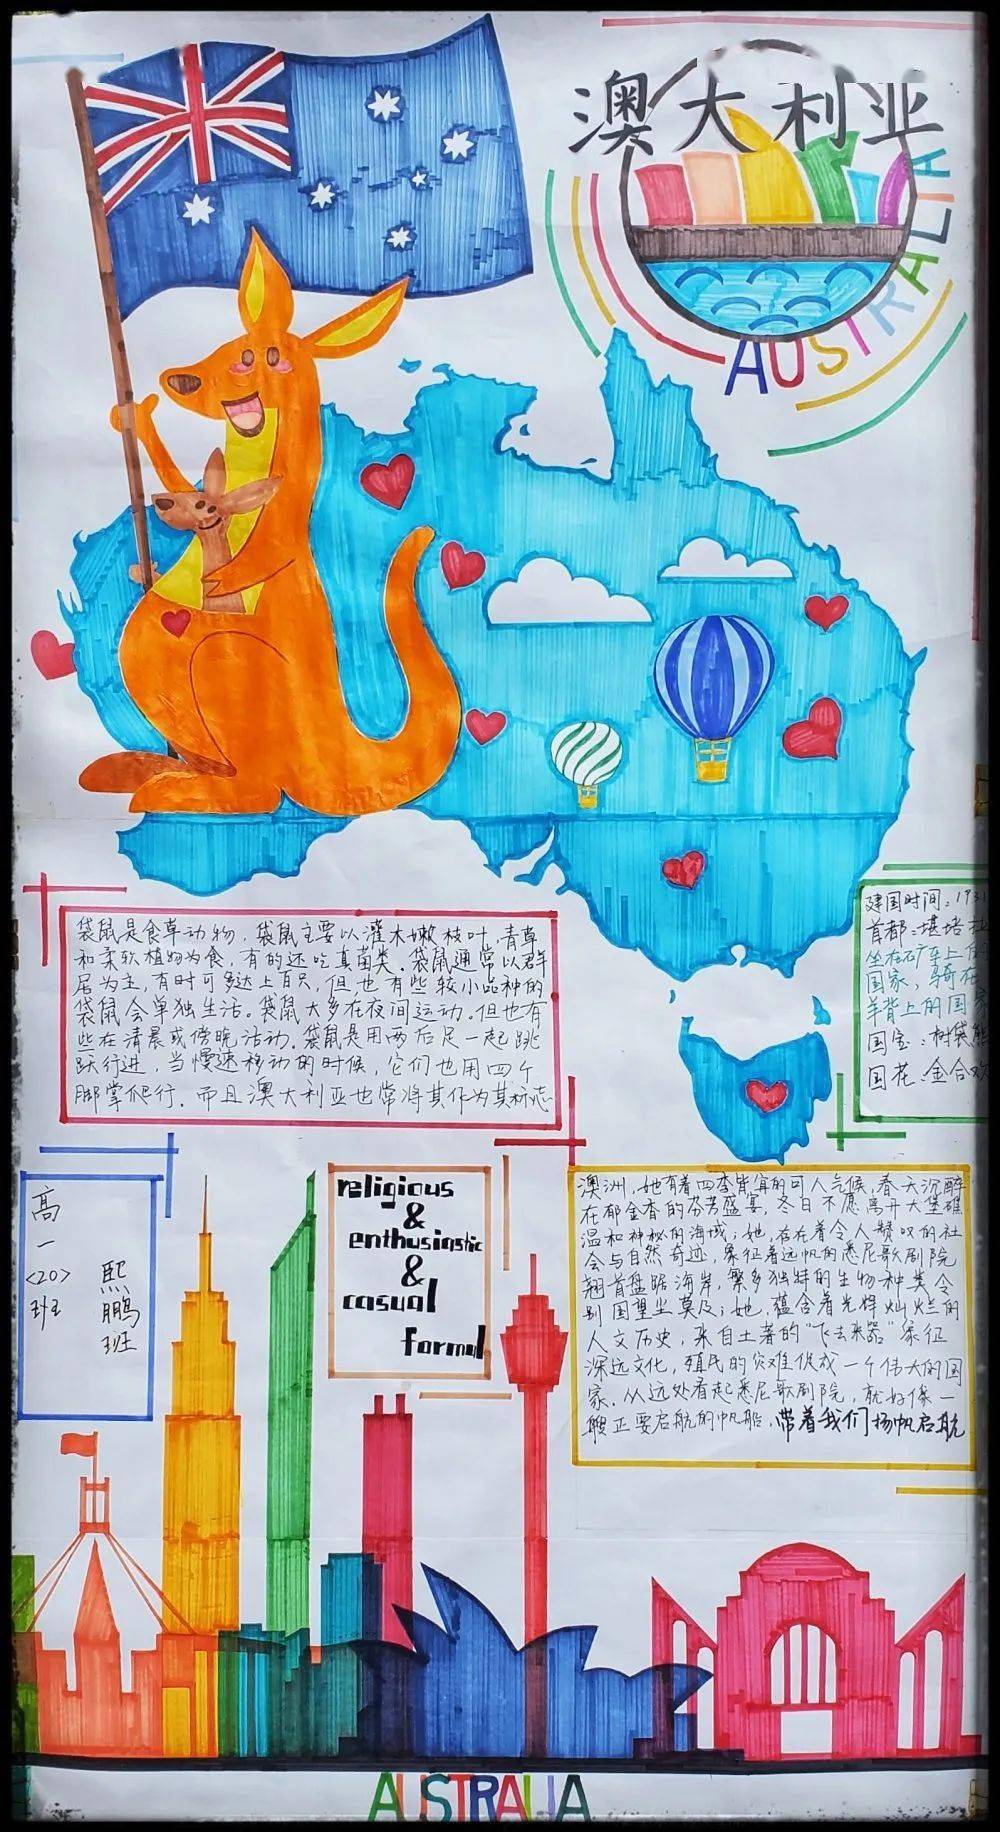 澳大利亚
AUSTRALIA
袋鼠是食草动物，袋鼠主要以灌木嫩枝叶，青草
和柔软植物为食，有的还吃真菌类。袋鼠通常以群
居为主，有时可多达上百只，但也有些较小品种的
袋鼠会单独生活。袋鼠大多在夜间运动，但也有
些在清晨或傍晚活动。袋鼠是用两后足一起跳
跃行进，当慢速移动的时候，它们也用四个
脚掌爬行。而且澳大利亚也常将其作为其标志
建国时间：1931
首都：堪培拉
坐在矿车上的
国家，骑在
羊背上的国家
国宝：树袋熊
国花：金合欢
高一
<20>
班
熙鹏班
religious
&
enthusiastic
&
casual
formal
澳洲，她有着四季皆宜的可人气候，春天沉醉
在郁金香的芬芳盛宴，冬日不愿离开大堡礁
温和神秘的海域；她，存在着令人赞叹的社
会与自然奇迹，象征着远帆的悉尼歌剧院
翘首盘踞海岸，繁多独特的生物种类令
别国望尘莫及；她，蕴含着光辉灿烂的
人文历史，来自土著的“飞去来器”象征
深远文化，殖民的灾难促成一个伟大的国
家。从远处看起悉尼歌剧院，就好像一
艘正要启航的帆船，带着我们扬帆启航
AUSTRALIA